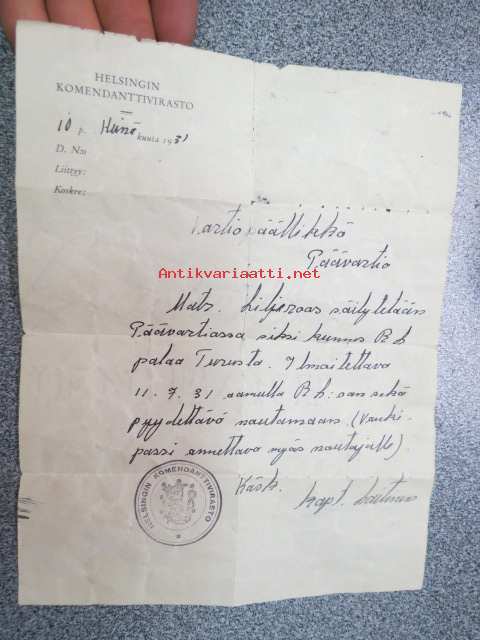 HELSINGIN
KOMENDANTTIVIRASTO
10 p. Heinä kuuta 1931
D. N:o
Liittyy:
Koskee:
Vartiopäällikkö
Päävartio
Antikvariaatti.net
Mats. Liljeroos säilytetään
Päävartiossa siksi kunnes R b
palaa Turusta. Ilmoitettava
11.7.31 aamulla R b:oon sekä
pyydettävä noutamaan. (Vanki-
passi annettava myös noutajalle).
Käsk.
kapt.
HELSINGIN KOMENDANTTIVIRASTO